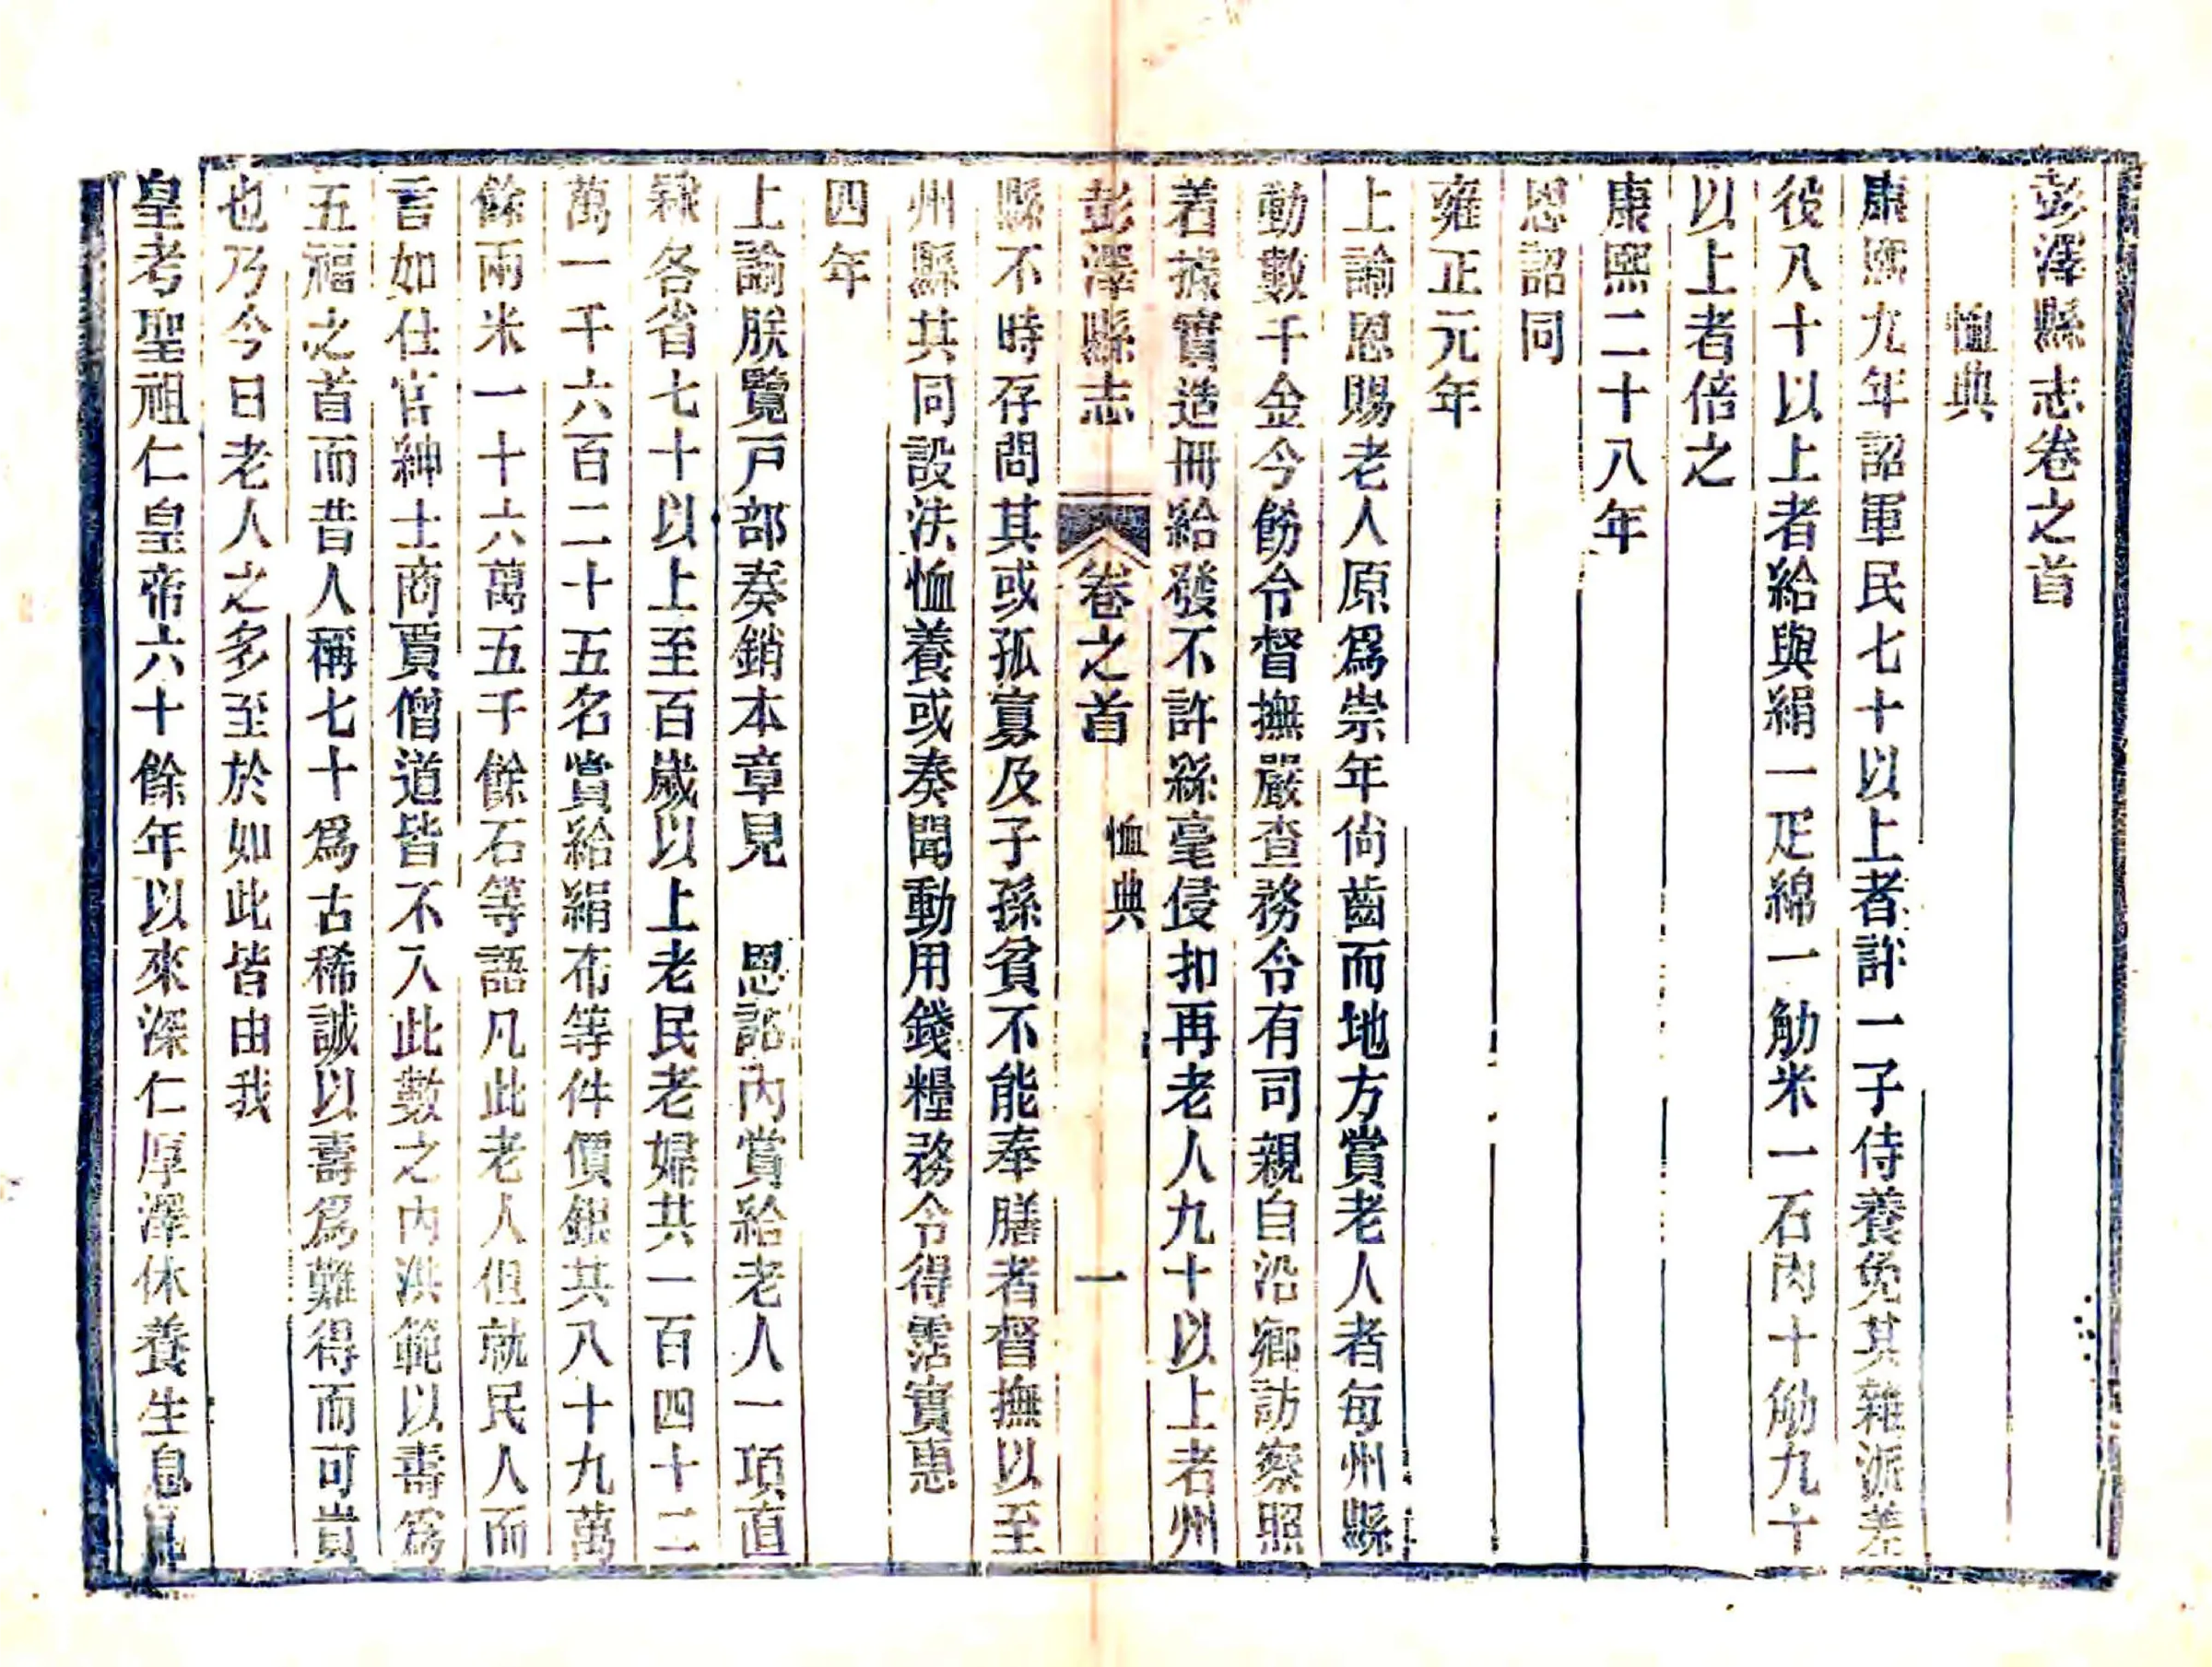 彭澤縣志卷之首
恤典
康熙九年詔軍民七十以上者許一子侍養免其雜派差
役八十以上者給與絹一疋綿一觔米一石肉十觔九十
以上者倍之
康熙二十八年
恩詔同
雍正元年
上諭恩賜老人原爲崇年尙齒而地方賞老人者每州縣
動數千金今飭令督撫嚴查務令有司親自沿鄉訪察照
着據實造冊給發不許絲毫侵扣再老人九十以上者州
彭澤縣志
卷之首
恤典
一
縣不時存問其或孤寡及子孫貧不能奉膳者督撫以至
州縣共同設法恤養或奏聞動用錢糧務令得霑實惠
四年
上諭朕覽戸部奏銷本章見 恩詔內賞給老人一項直
隸各省七十以上至百歲以上老民老婦共一百四十二
萬一千六百二十五名賞給絹布等件價銀共八十九萬
餘兩米一十六萬五千餘石等語凡此老人但就民人而
言如仕宦紳士商賈僧道皆不入此數之內洪範以壽爲
五福之首而昔人稱七十爲古稀誠以壽爲難得而可貴
也乃今日老人之多至於如此皆由我
皇考聖祖仁皇帝六十餘年以來深仁厚澤休養生息